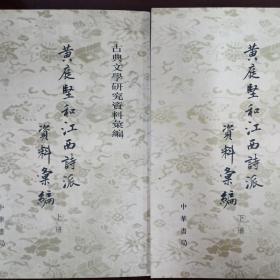 古典文學研究資料彙編
黄庭堅和江西詩派
資料彙編
上册
中華書局
黄庭堅和江西詩派
資料彙編
下册
中華書局